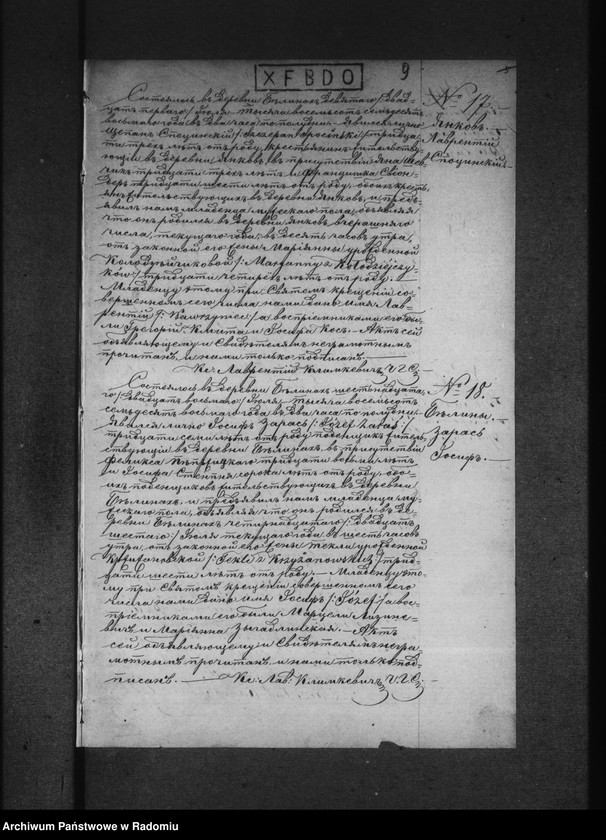 XFBDO
9
№ 17.
Янковъ.
Лаврентій
Спосинскій
Состоялось въ деревнѣ Бѣлинахъ девятаго / двад-
цать перваго / Іюля тысяча восемьсотъ семьдесятъ
восьмаго года въ два часа по полудни. Явился лично
тридца-
ти трехъ лѣтъ отъ роду, крестьянинъ жительству-
ющій въ деревнѣ Янковъ въ присутствіи Яна
тридцати трехъ лѣтъ и Францишка
тридцати шести лѣтъ отъ роду, обоихъ крест-
янъ жительствующихъ въ деревнѣ Янковъ, и предъ-
явилъ намъ младенца мужескаго пола, объявляя
что онъ родился въ деревнѣ Янковъ вчерашняго
числа, текущаго года, въ десять часовъ утра,
отъ законной его жены Маріянны урожденной
Колодзѣйчиковой /: Maryanny z Kołodziejczy-
ków / тридцати четырехъ лѣтъ отъ роду.
Младенцу этому при Святомъ крещеніи со-
вершенномъ сего числа нами дано имя Лав-
рентій /: Wawrzyniec / а воспріемниками его бы-
ли Григорій Клита и Госифа Кось. Актъ сей
объявляющему и Свидѣтелямъ неграмотнымъ
прочитанъ, и нами только подписанъ.
Кс. Лаврентій Климкевичъ Ч. Г. С.
№ 18.
Бѣлины.
Зарась
Іосифъ.
Состоялось въ деревнѣ Бѣлинахъ шестьнадцата-
го / двадцать восьмаго / Іюля тысяча восемьсотъ
семьдесятъ восьмаго года въ два часа по полудни.
Явился лично Іосифъ Зарась /: Józef Zaraś /
тридцати семи лѣтъ отъ роду поденщикъ житель-
ствующій въ деревнѣ Бѣлинахъ, въ присутствіи
Феликса тридцати восьми лѣтъ
и Іосифа Стемпня сорока лѣтъ отъ роду, обо-
ихъ поденщиковъ жительствующихъ въ деревнѣ
Бѣлинахъ, и предъявилъ намъ младенца му-
жескаго пола, объявляя что онъ родился въ де-
ревнѣ Бѣлинахъ четырнадцатаго /: двадцать
шестаго / Іюля текущаго года въ шесть часовъ
утра, отъ законной его жены Текли урожденной
Кржижановской /: Tekli z Krzyżanowskich / трид-
цати шести лѣтъ отъ роду. — Младенцу это-
му при Святомъ крещеніи совершенномъ сего
числа нами дано имя Іосифъ /: Józef / а вос-
пріемниками его были Марцели
и Маріянна — Актъ
сей объявляющему и Свидѣтелямъ негра-
мотнымъ прочитанъ и нами только под-
писанъ. — Кс: Лав: Климкевичъ Ч. Г. С.
Archiwum Państwowe w Radomiu